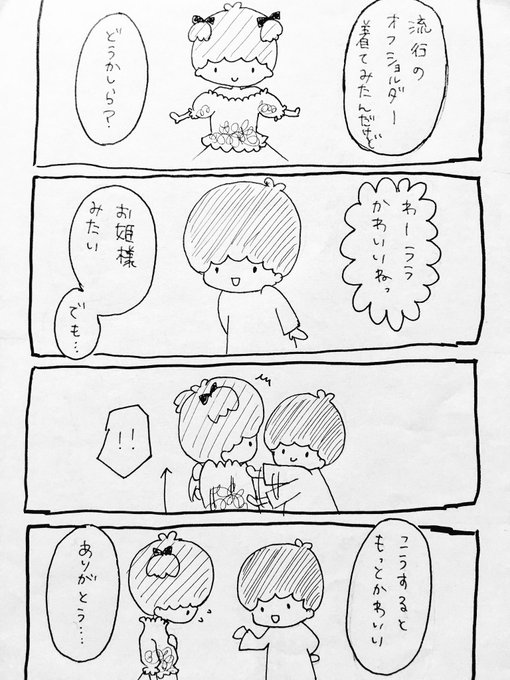 流行の
オフショルダー
着てみたんだけど
どうかしら？
わーララ
かわいいねっ
お姫様
みたい
でも…
！！
こうすると
もっとかわいい
ありがとう…